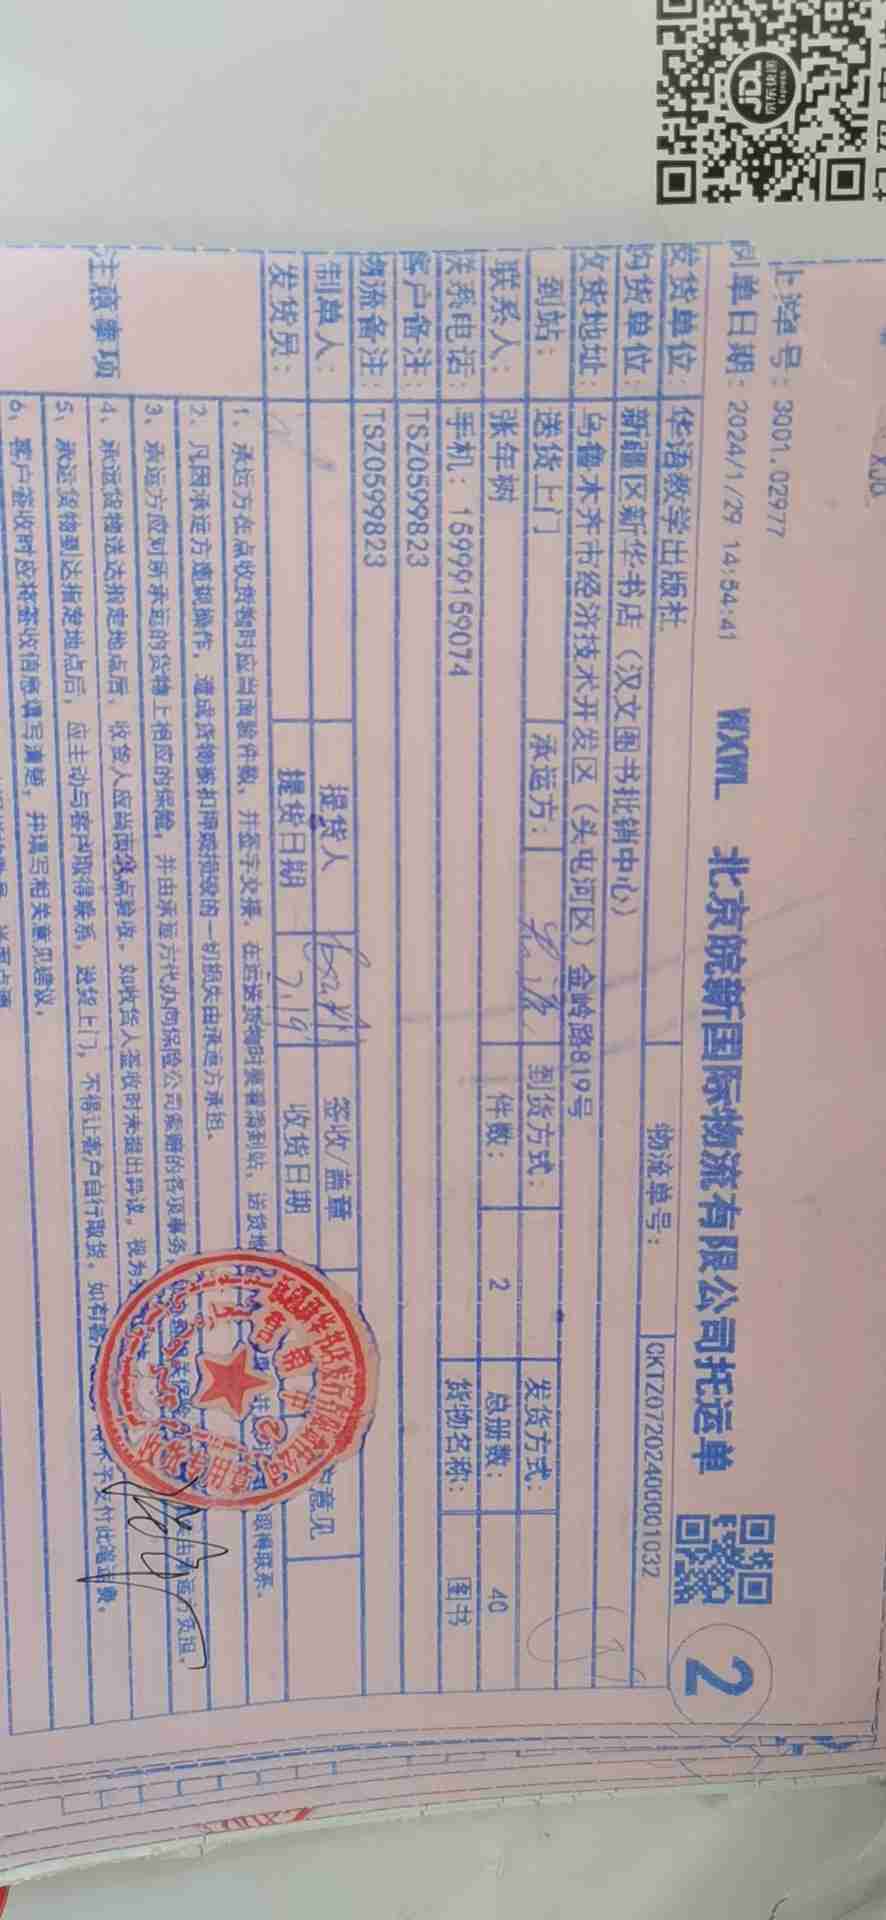 JDL
京东快递
Express
上游单号：3001.02977
制单日期：2024/1/29 14:54:41 WXWL 北京皖新国际物流有限公司托运单 2
发货单位：华语教学出版社 物流单号： CKTZ0720240001032
购货单位：新疆区新华书店（汉文图书批销中心）
收货地址：乌鲁木齐市经济技术开发区（头屯河区）金岭路819号
到站： 送货上门 承运方： 到货方式： 发货方式：
联系人： 张年树 件数： 2 总册数： 40
联系电话：手机：15999159074 货物名称： 图书
客户备注：TSZ0599823
物流备注：TSZ0599823
制单人： 提货人 签收/盖章 意见
发货员： 提货日期 收货日期
注意事项
1、承运方在点收货物时应当面验件数，并签字交接，在运送货物时要看清到站，送货地 取得联系。
2、凡因承运方违规操作，造成货物被扣押或损毁的一切损失由承运方承担。
3、承运方应对所承运的货物上相应的保险，并由承运方代办向保险公司索赔的各项事务 承运方负担。
4、承运货物送达指定地点后，收货人应当面清点验收。如收货人签收时未提出异议，视为
5、承运货物到达指定地点后，应主动与客户取得联系，送货上门，不得让客户自行取货。如有客 不予支付此笔运费。
6、客户签收时应将签收信息填写清楚，并填写相关意见建议。